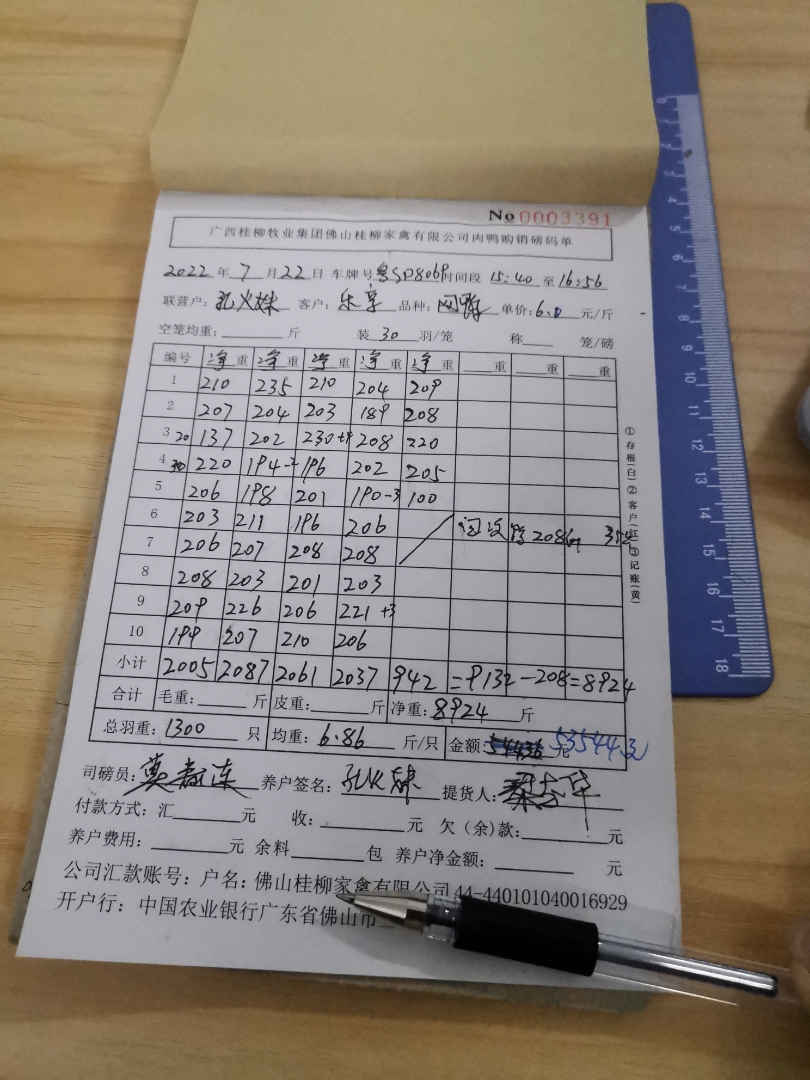 No 0003391
广西桂柳牧业集团佛山桂柳家禽有限公司肉鸭购销磅码单
2022 年 7 月 22 日 车牌号 时间段 15:40 至 16:56
联营户: 孔火妹 客户: 乐享 品种: 单价: 6.0 元/斤
空笼均重: 斤 装 30 羽/笼 称 笼/磅
编号 净重 净重 净重 净重 净重 重 重 重
1 210 235 210 204 209
2 207 204 203 189 208
3 20 137 202 230+4 208 220
4 30 220 194-2 196 202 205
5 206 198 201 190-3 100
6 203 211 196 206
208
7 206 207 208 208
8 208 203 201 203
9 209 226 206 221+3
10 199 207 210 206
小计 2005 2087 2061 2037 942 =9132-208=8924
合计 毛重: 斤 皮重: 斤 净重: 8924 斤
总羽重: 1300 只 均重: 6.86 斤/只 金额: 元 53544.元
司磅员: 养户签名: 提货人:
付款方式: 汇 元 收: 元 欠(余)款: 元
养户费用: 元 余料 包 养户净金额: 元
公司汇款账号: 户名: 佛山桂柳家禽有限公司 44-440101040016929
开户行: 中国农业银行广东省佛山市
①存根(白)②客户(红)③记账(黄)
0 1 2 3 4 5 6 7 8 9 10 11 12 13 14 15 16 17 18